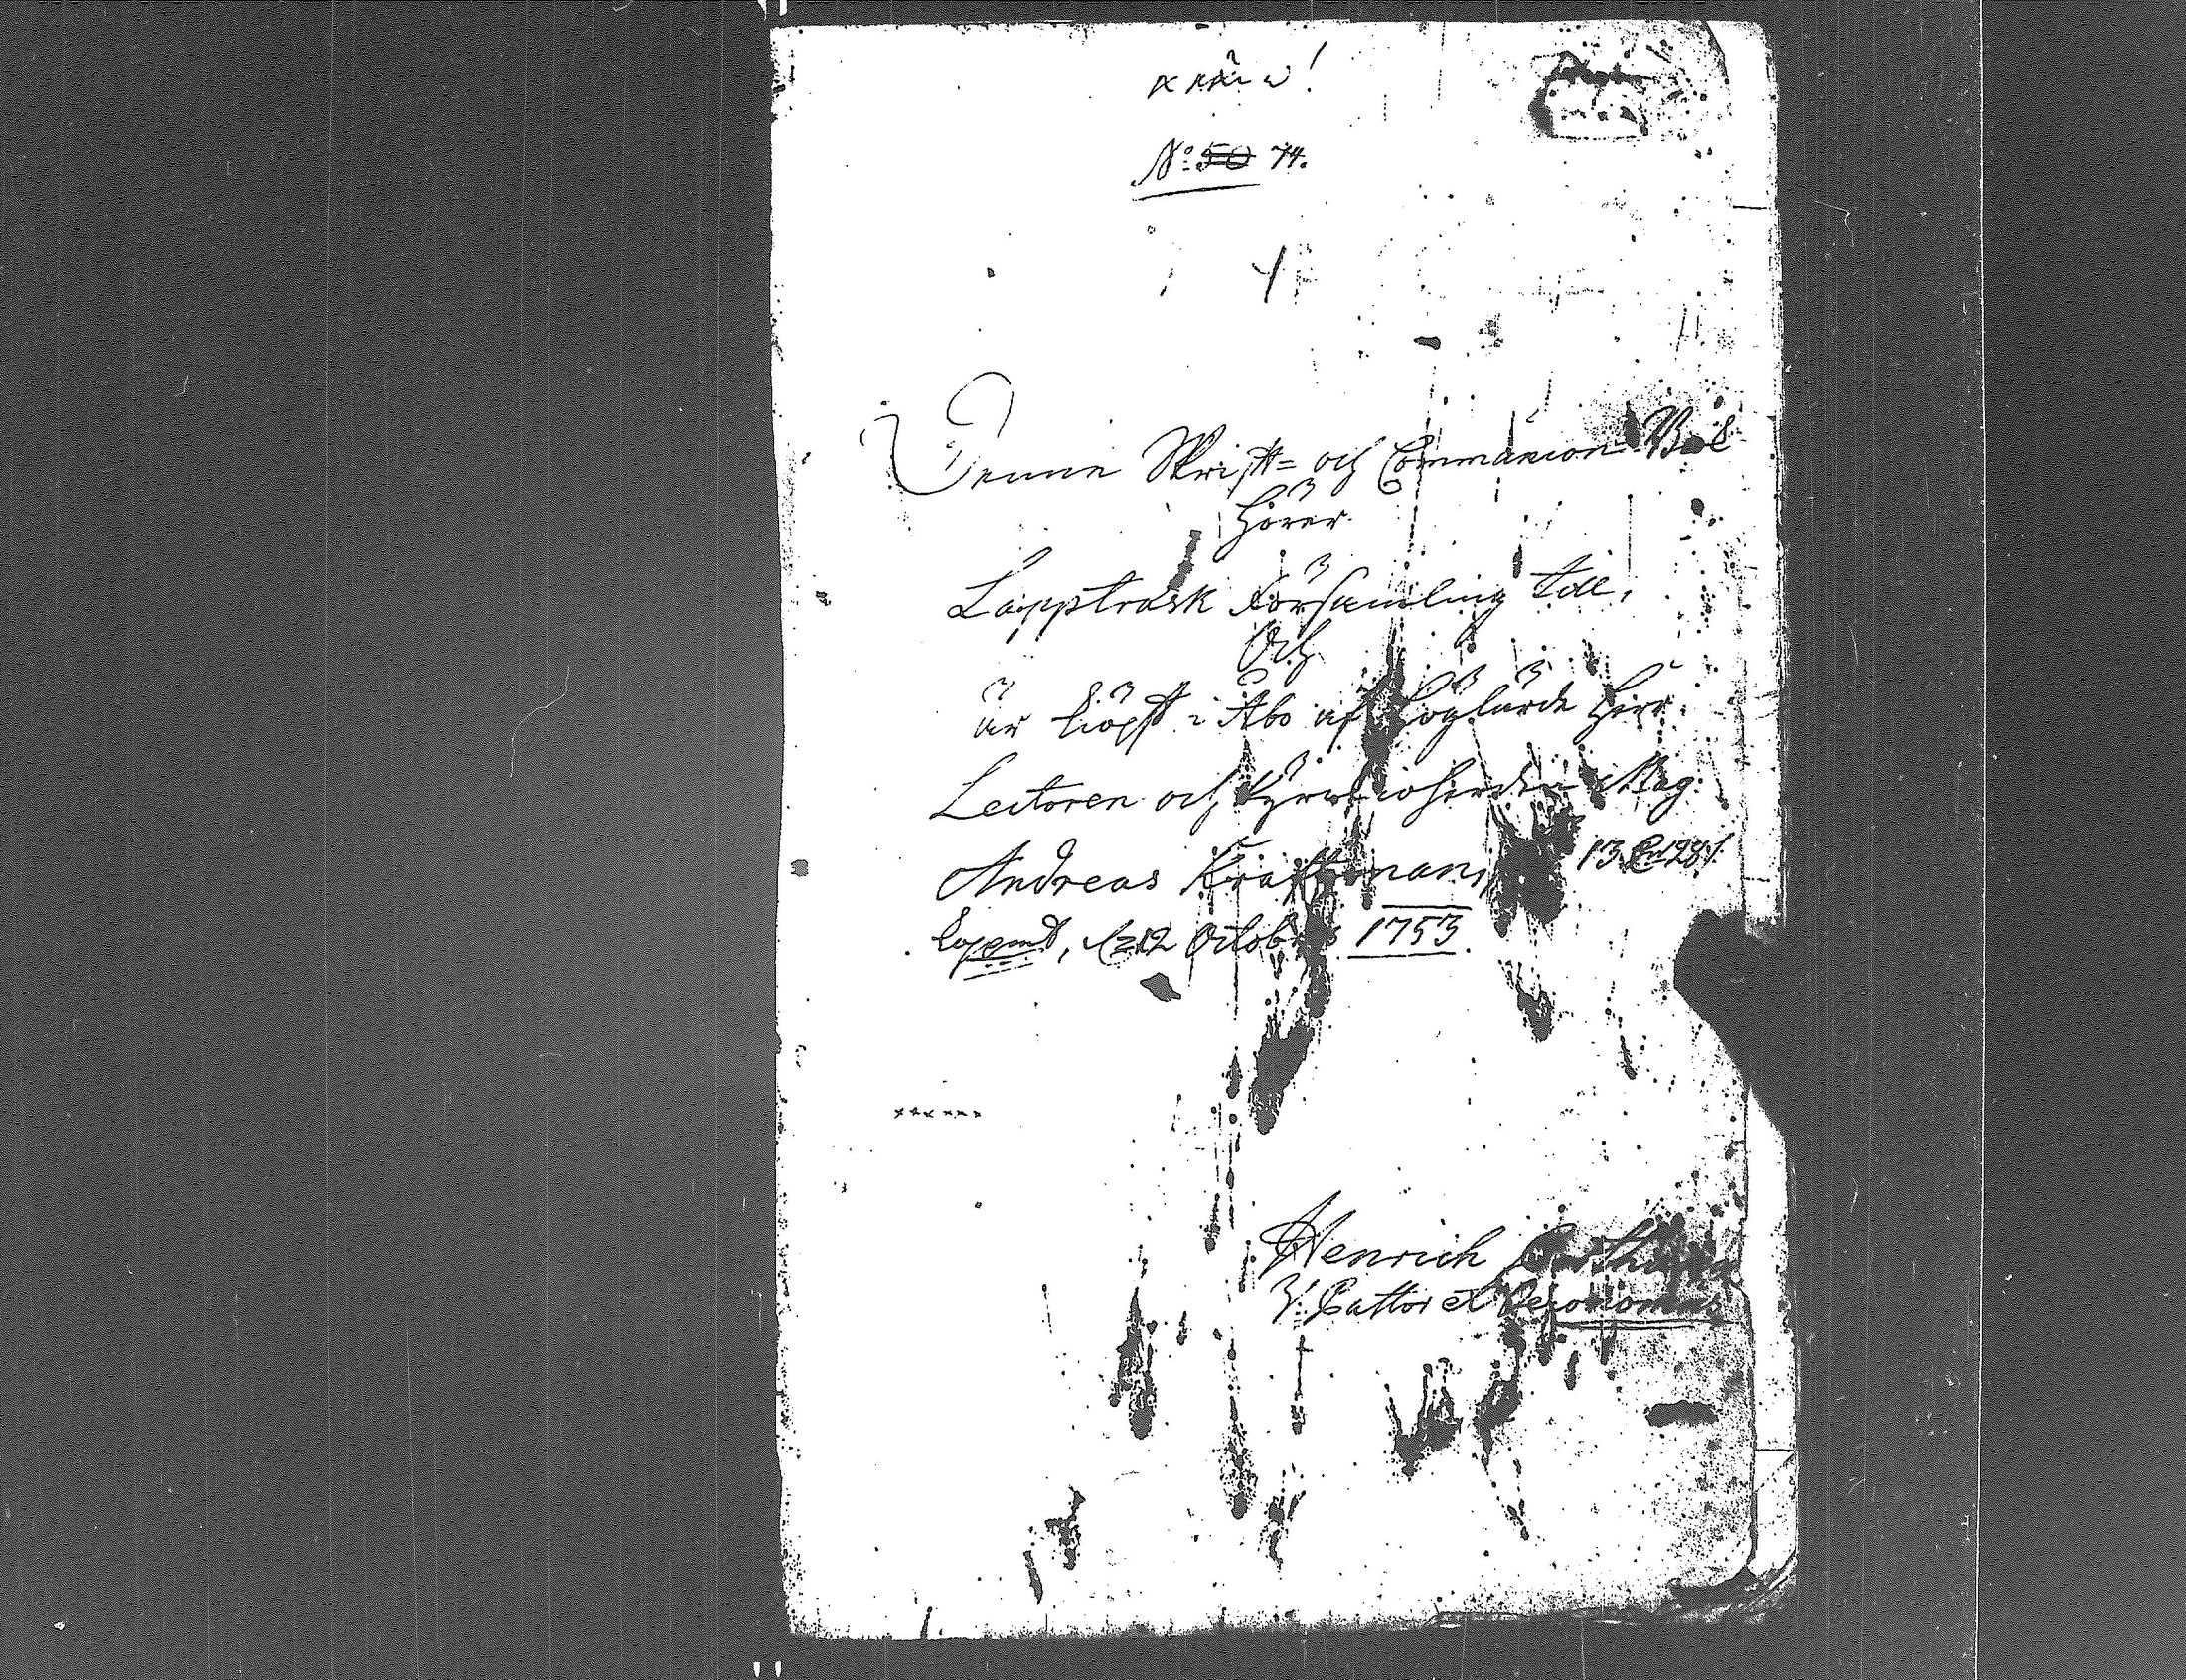 No: 50 74.
Denne Skrifft= och Communion Bok
hörer
Lappträsk Församling till,
Och
är kiöpt i Åbo af Höglärde Herr
Lectoren och Kyrckioherden Mag:
Andreas Kraftman,
d. 12 Octobris 1753.
Henrich
V. Pastor et Oeconomus